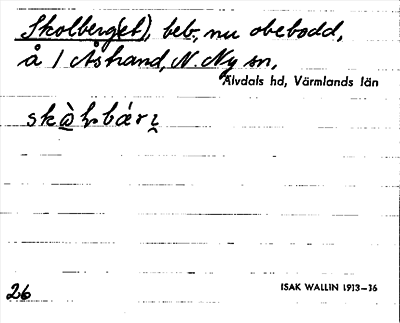 Skolberg(et), beb., nu obebodd,
å 1 Åstrand, N. Ny sn,
Älvdals hd, Värmlands län
26
ISAK WALLIN 1913–16